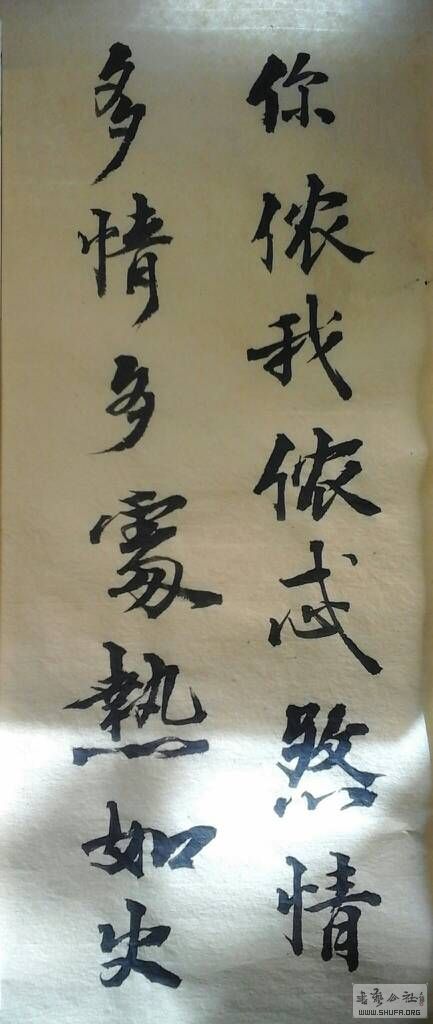 你侬我侬忒煞情
多情多處熱如火
書藝公社
WWW.SHUFA.ORG